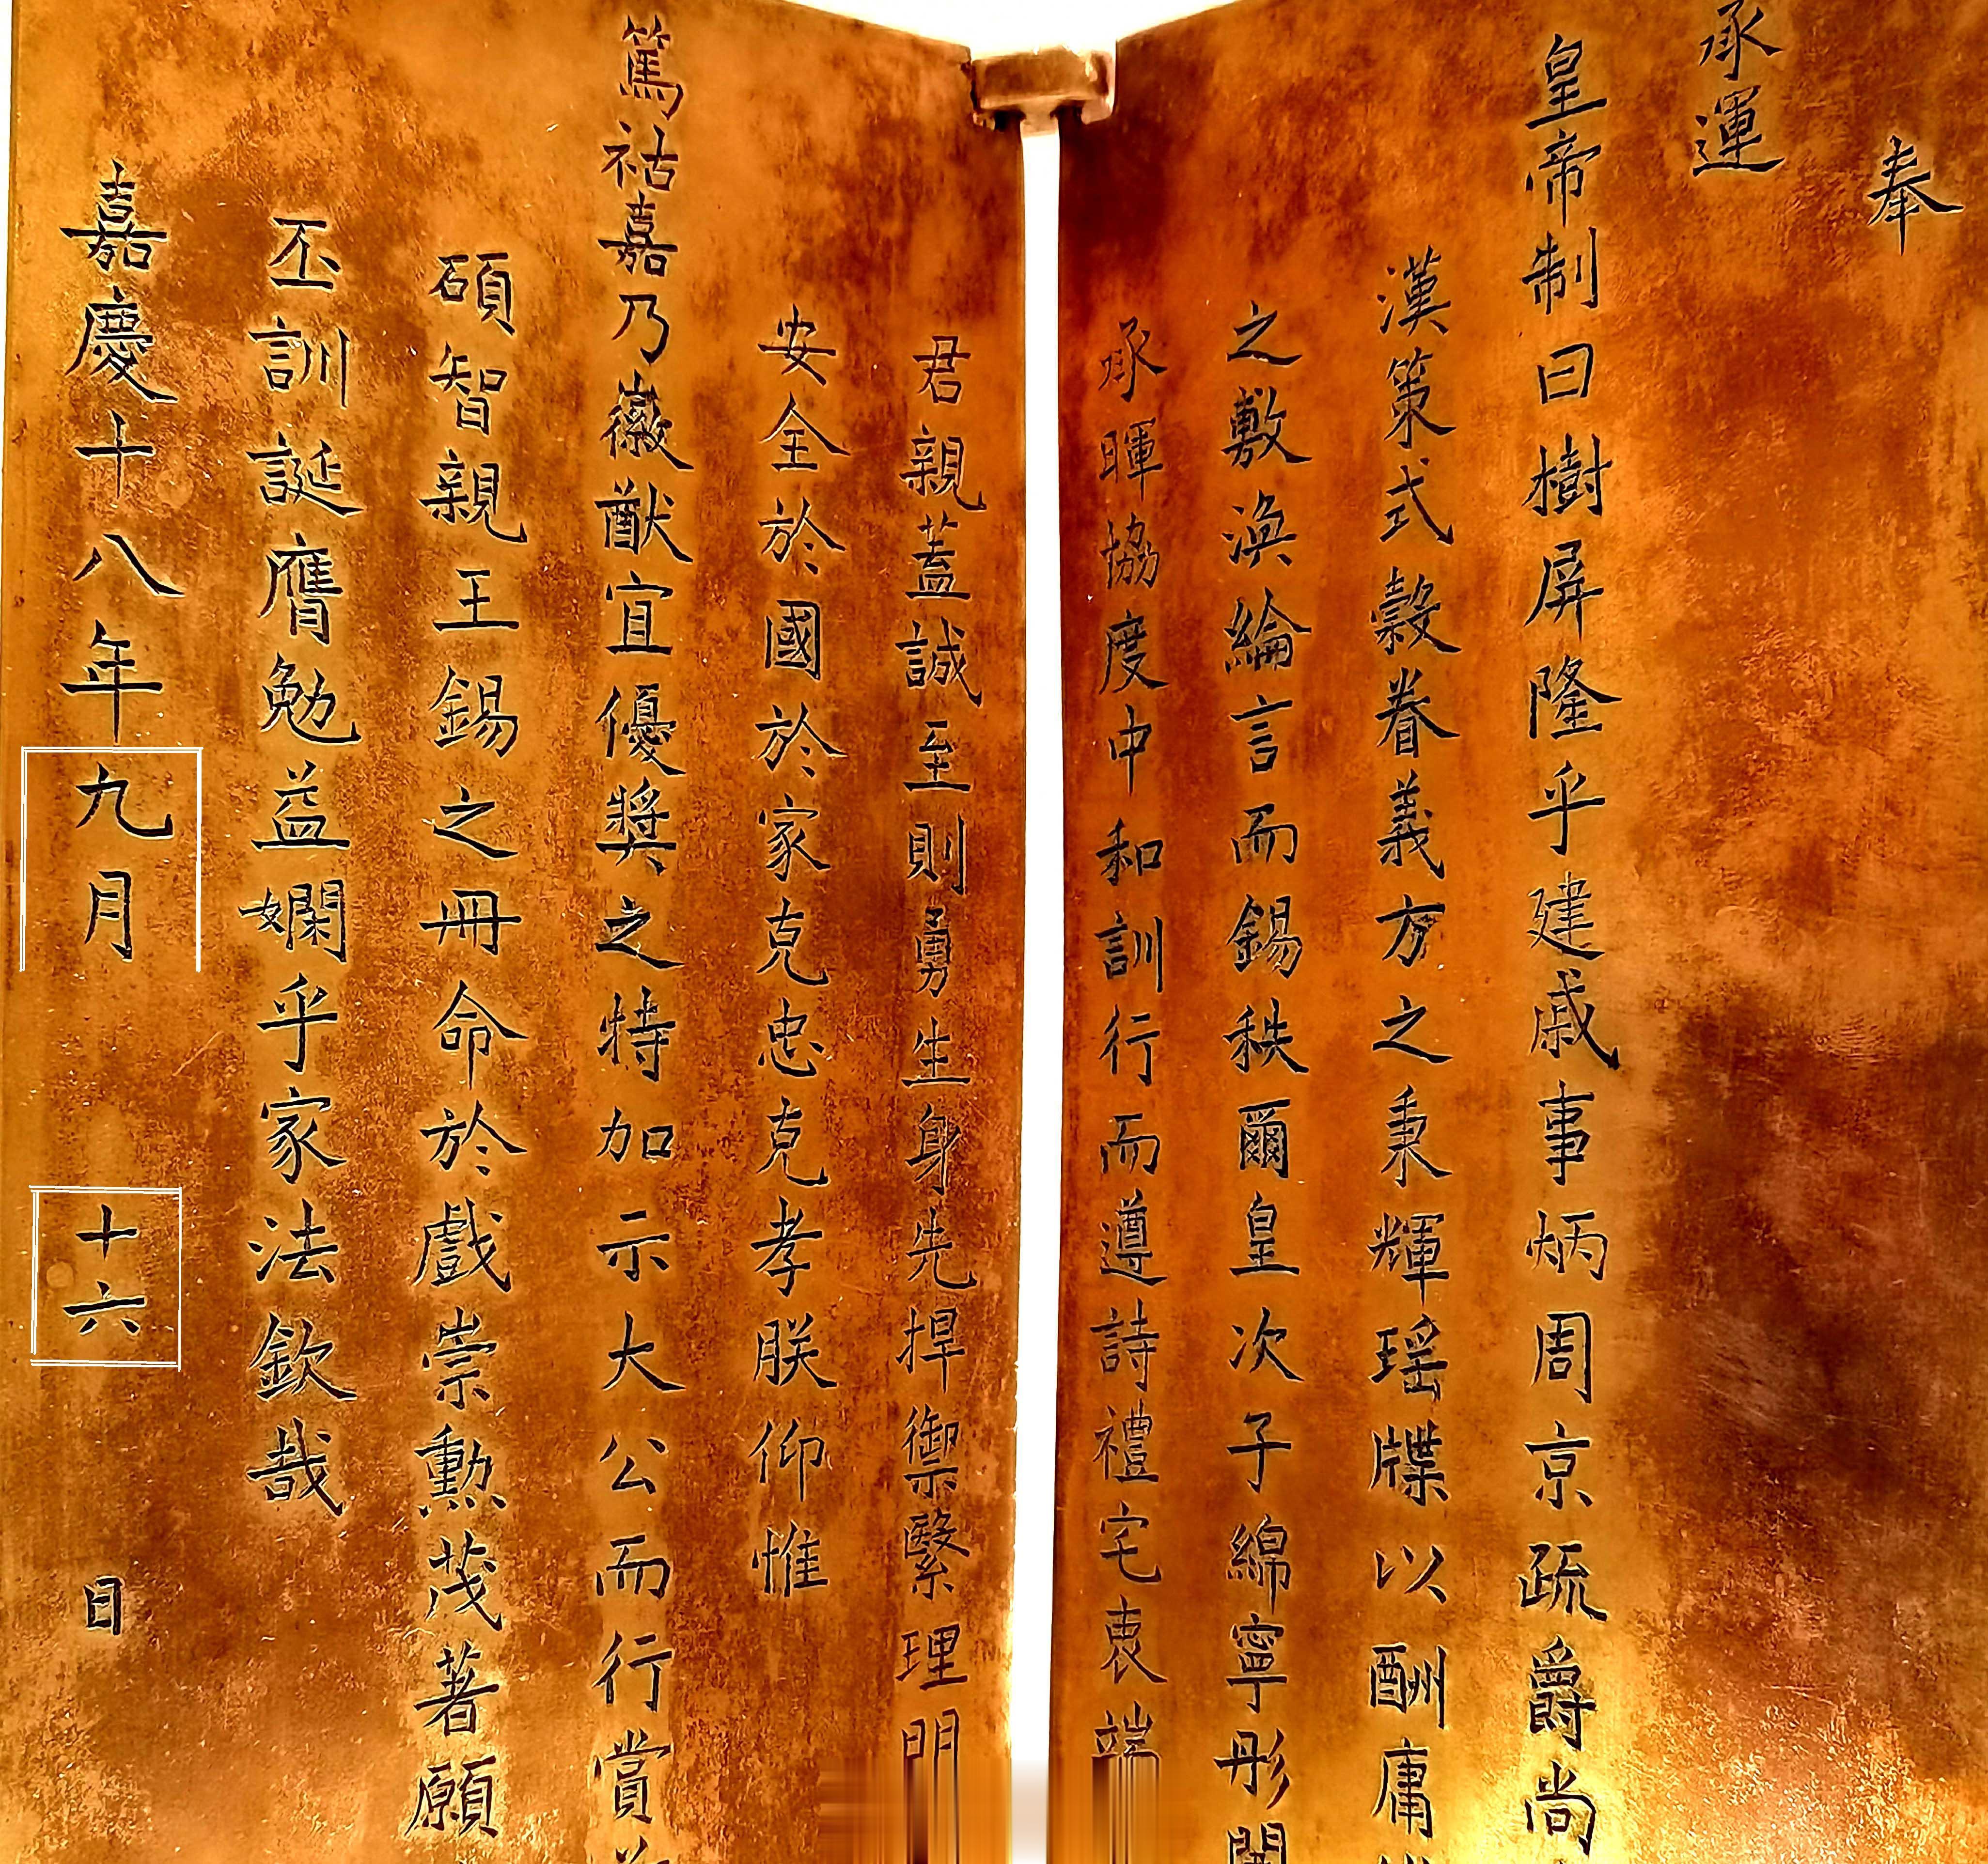 奉
承運
皇帝制曰樹屏隆乎建戚事炳周京疏爵尚
漢策式穀眷義方之秉輝瑤牒以酬庸
之敷渙綸言而錫秩爾皇次子綿寧彤闈
承暉協度中和訓行而遵詩禮宅衷端
君親蓋誠至則勇生身先捍禦繫理明
安全於國於家克忠克孝朕仰惟
篤祜嘉乃徽猷宜優獎之特加示大公而行賞
碩智親王錫之冊命於戲崇勳茂著願
丕訓誕膺勉益嫻乎家法欽哉
嘉慶十八年九月十六日